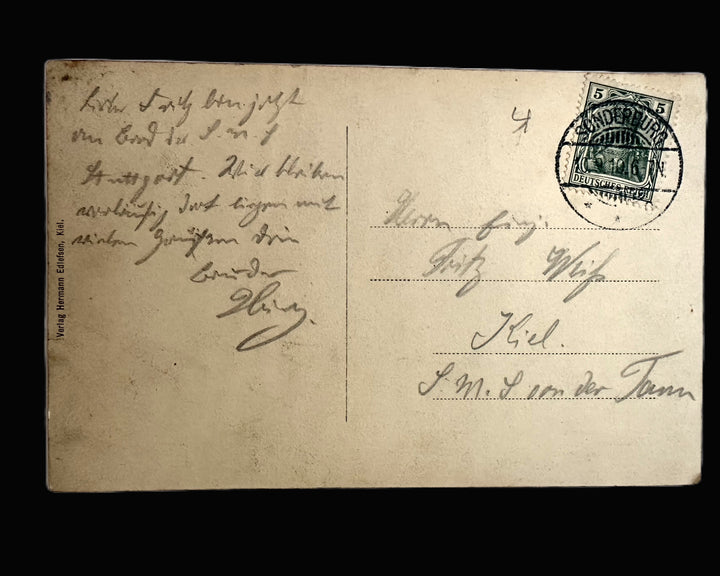 Lieber Fritz bin jetzt
an Bord der S. M. S
Stuttgart. Wir bleiben
vorläufig dort liegen mit
vielen Grüßen Dein
bruder
Verlag Hermann Edlefsen, Kiel.
4
5 5
SONDERBURG
DEUTSCHES REICH
Herrn Einj.
Fritz Weiß
Kiel.
S. M. S von der Tann